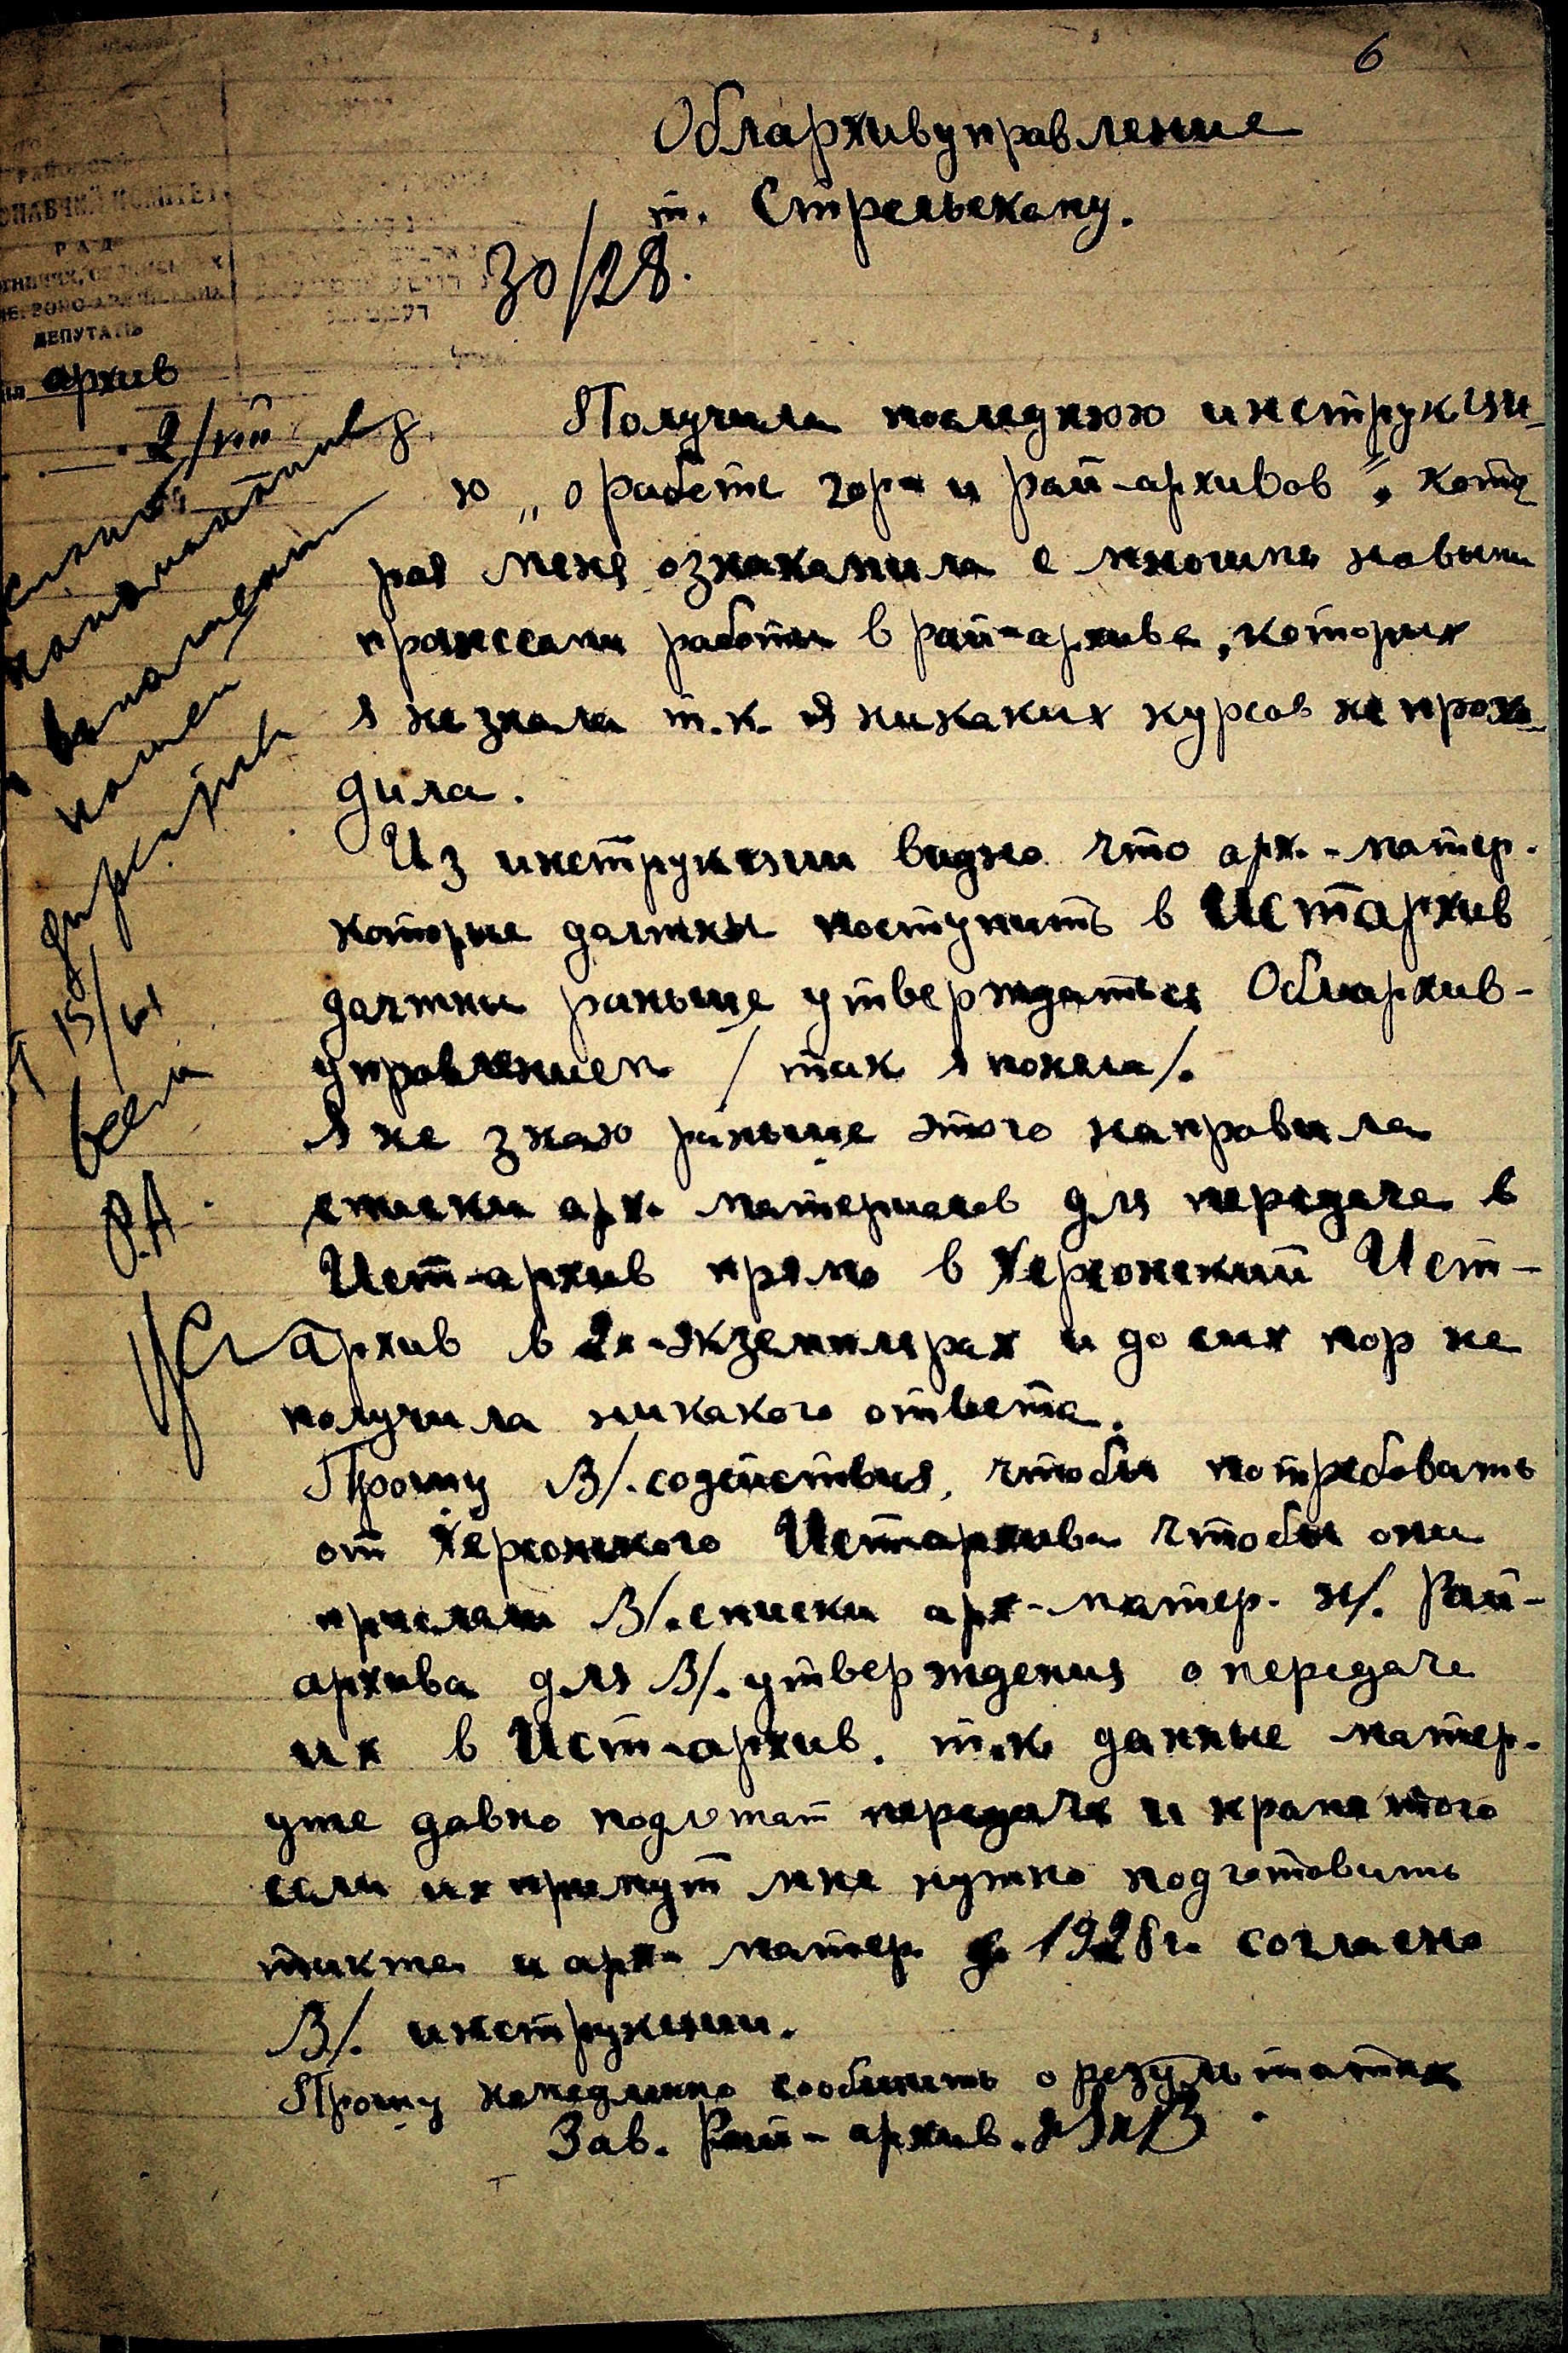 6
Облархивуправление
т. Стрельскому.
30/28.
КОМІТЕТ
РАД
ДЕПУТАТІВ
архив
2/VIII
Получила последнюю инструкци-
ю „о работе гор- и рай-архивов", кото
рая меня ознакамила с многимы новыми
процессами работы в рай-архиве, которых
я не знала т.к. я никаких курсов не прохо-
дила.
Из инструкции видно что арх.-матер.
которые должны поступить в Истархив
должны раньше утверждаться Облархив-
управлением /так я поняла/.
Я не знаю раньше этого направила
списки арх. материалов для передаче в
Ист-архив прямо в Херсонский Ист-
архив в 2х-экземплярах и до сих пор не
получила никакого ответа.
Прошу В/. содействия, чтобы потребовать
от Херсонского Истархива чтобы они
прислали В/. списки арх-матер. н/. Рай-
архива для В/. утверждения о передаче
их в Ист-архив. т.к. данные матер.
уже давно подлежат передаче и кроме того
если их примут мне нужно подготовить
также и арх- матер. 1928г. согласно
В/. инструкции.
Прошу немедлино сообщить о результатах
Зав. Рай-архив.
15/VI
всем
Р.А.